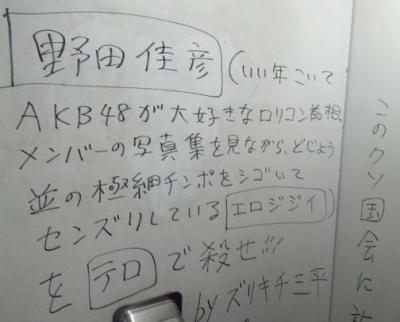 野田佳彦(いい年こいて
AKB48が大好きなロリコン首相。
メンバーの写真集を見ながら、どじょう
並の極細チンポをシゴいて
センズリしているエロジジイ)
をテロで殺せ!!!
by ズリキチ三平
このクソ国会に